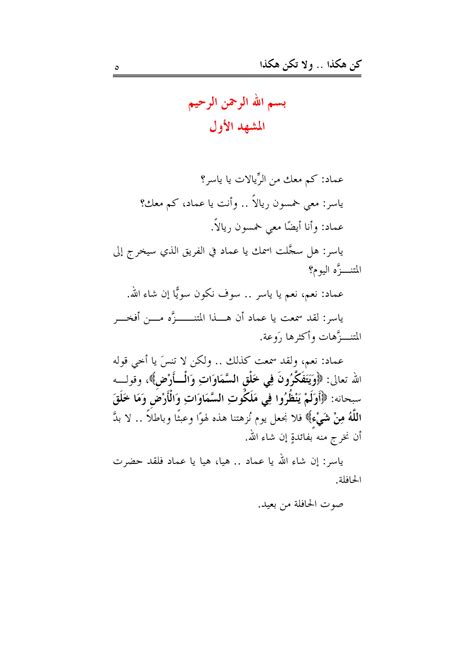 كن هكذا .. ولا تكن هكذا ٥
بسم الله الرحمن الرحيم
المشهد الأول
عماد: كم معك من الرِّيالات يا ياسر؟
ياسر: معي خمسون ريالاً .. وأنت يا عماد، كم معك؟
عماد: وأنا أيضًا معي خمسون ريالاً.
ياسر: هل سجَّلت اسمك يا عماد في الفريق الذي سيخرج إلى
المتنـــزَّه اليوم؟
عماد: نعم، نعم يا ياسر .. سوف نكون سويًّا إن شاء الله.
ياسر: لقد سمعت يا عماد أن هـــذا المتنـــــزَّه مـــن أفخـــر
المتنـــزَّهات وأكثرها رَوعة.
عماد: نعم، ولقد سمعت كذلك .. ولكن لا تنسَ يا أخي قوله
الله تعالى: ﴿وَيَتَفَكَّرُونَ فِي خَلْقِ السَّمَاوَاتِ وَالْـــأَرْضِ﴾، وقولـــه
سبحانه: ﴿أَوَلَمْ يَنْظُرُوا فِي مَلَكُوتِ السَّمَاوَاتِ وَالْأَرْضِ وَمَا خَلَقَ
اللَّهُ مِنْ شَيْءٍ﴾ فلا نجعل يوم نُزهتنا هذه لهوًا وعبثًا وباطلاً .. لا بدَّ
أن نخرج منه بفائدةٍ إن شاء الله.
ياسر: إن شاء الله يا عماد .. هيا، هيا يا عماد فلقد حضرت
الحافلة.
صوت الحافلة من بعيد.